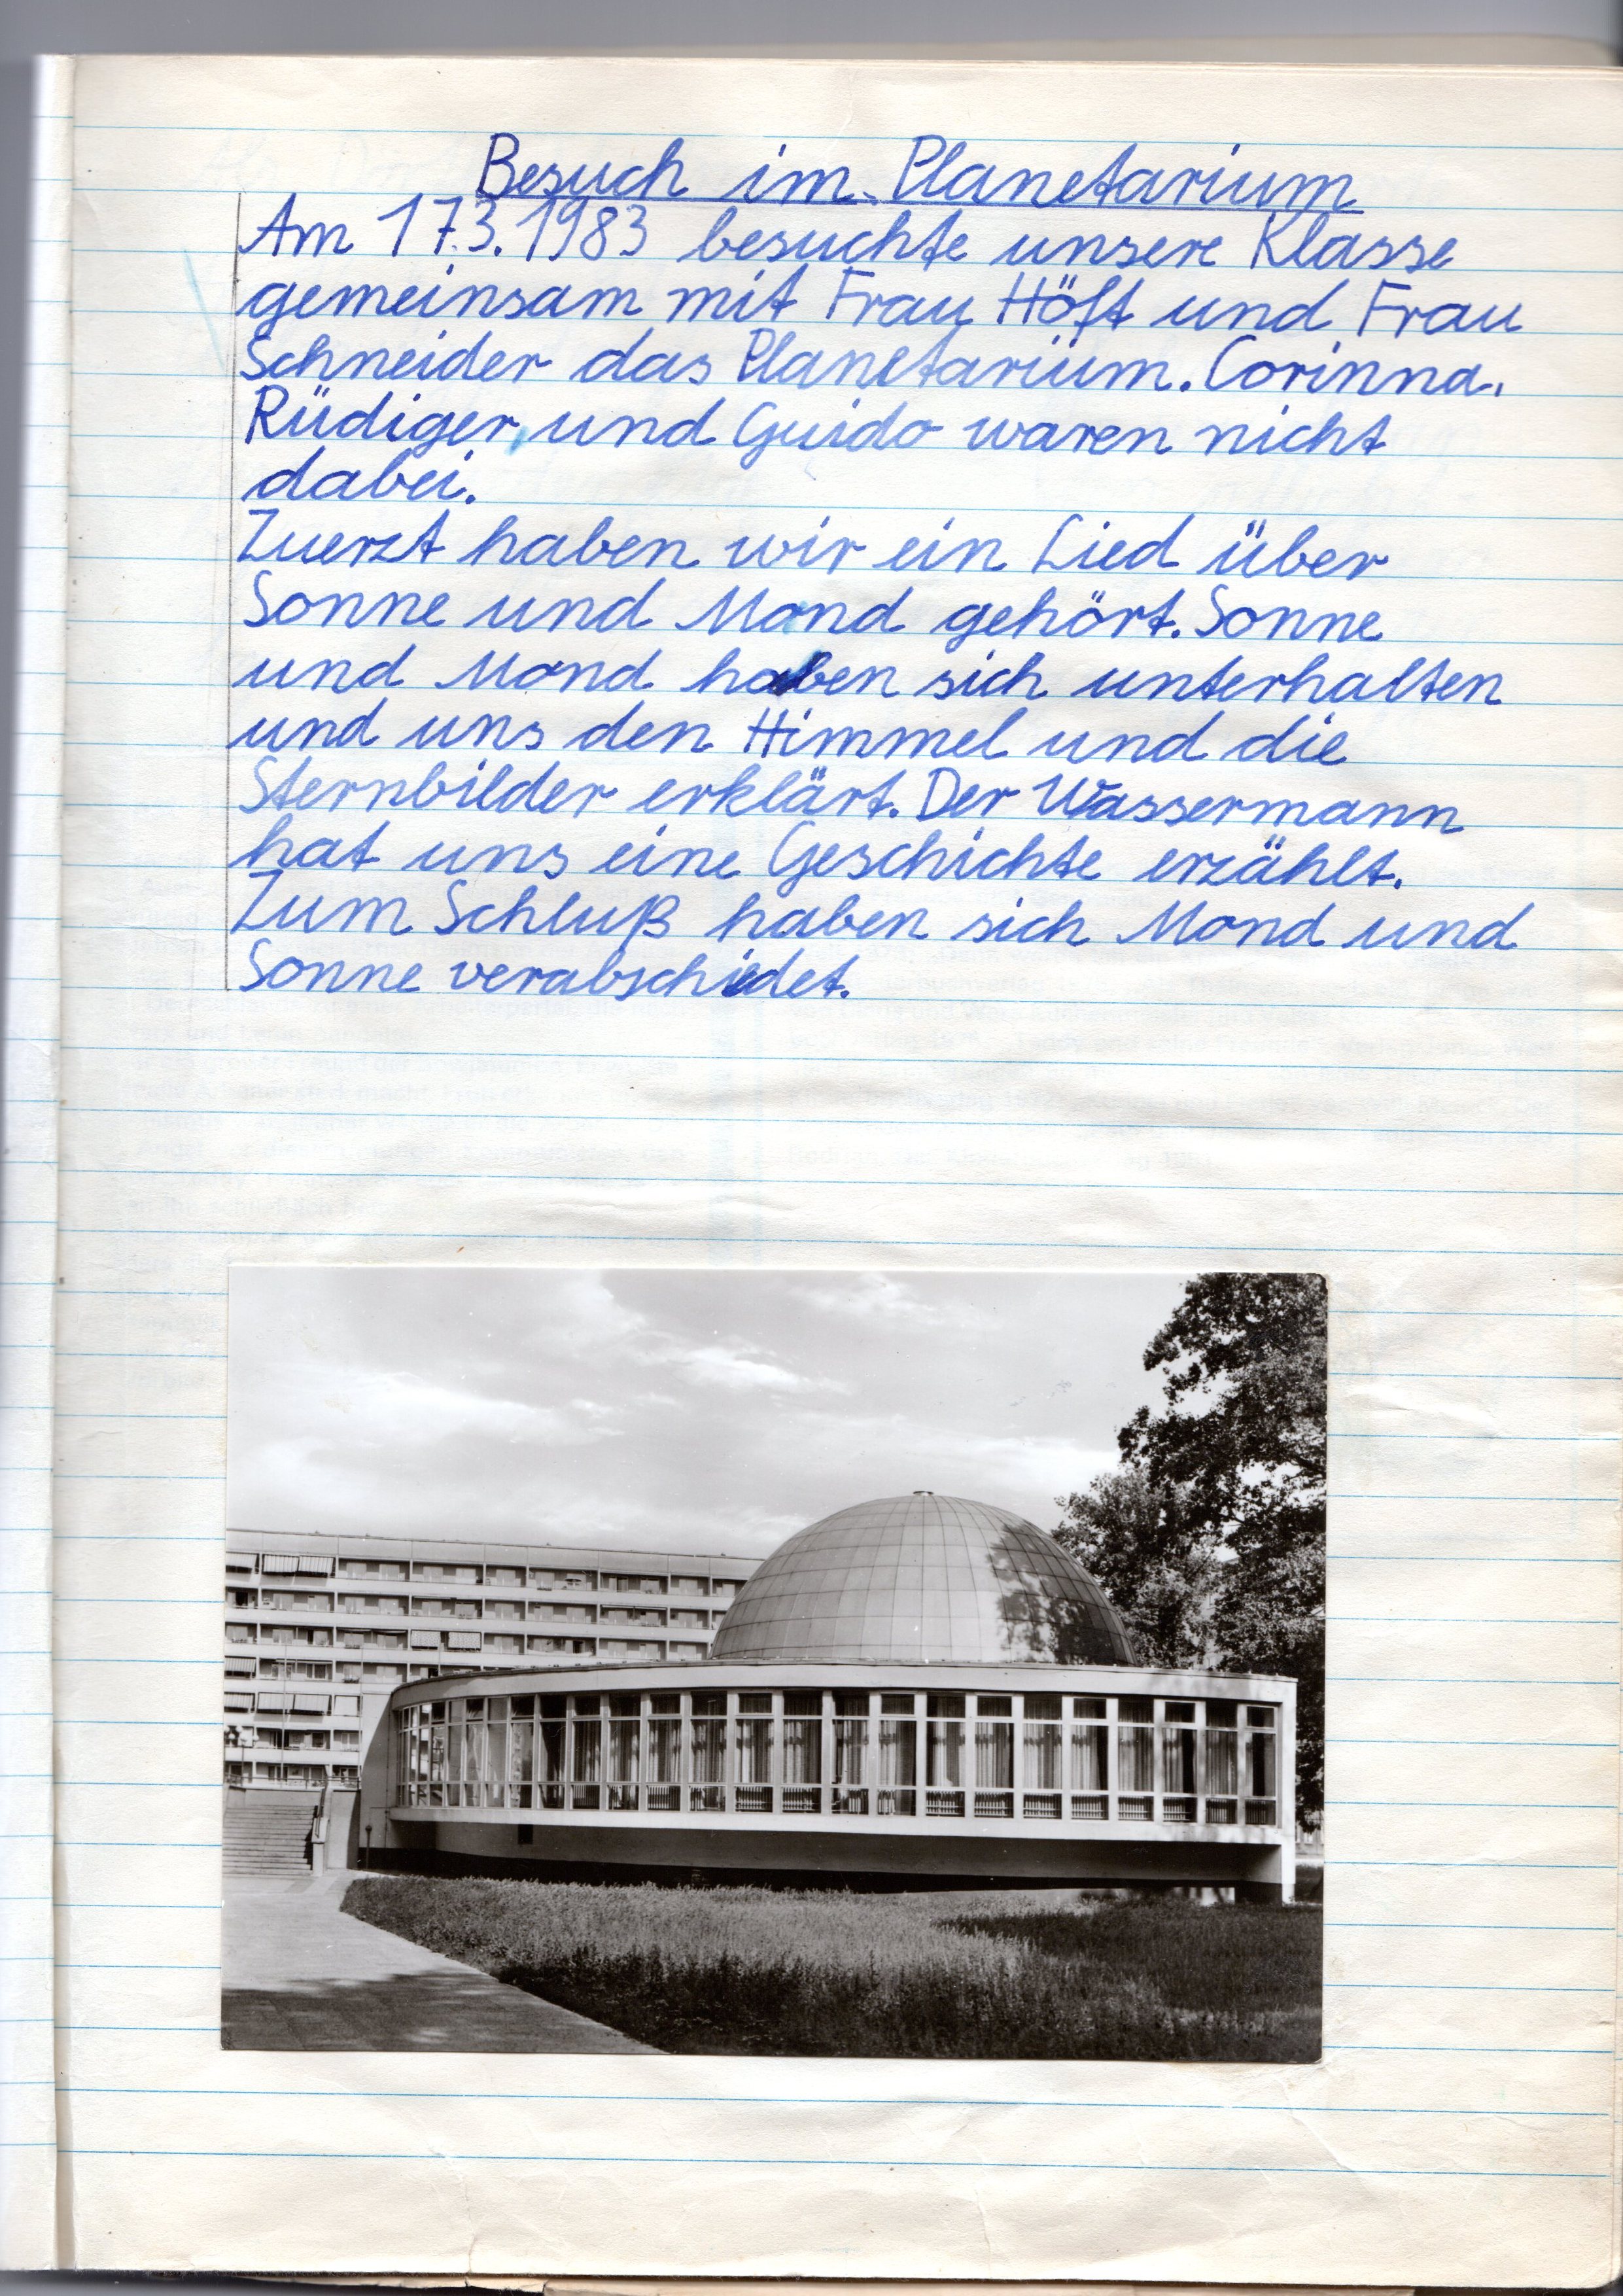 Besuch im Planetarium
Am 17.3.1983 besuchte unsere Klasse
gemeinsam mit Frau Höft und Frau
Schneider das Planetarium. Corinna,
Rüdiger und Guido waren nicht
dabei.
Zuerzt haben wir ein Lied über
Sonne und Mond gehört. Sonne
und Mond haben sich unterhalten
und uns den Himmel und die
Sternbilder erklärt. Der Wassermann
hat uns eine Geschichte erzählt.
Zum Schluß haben sich Mond und
Sonne verabschiedet.